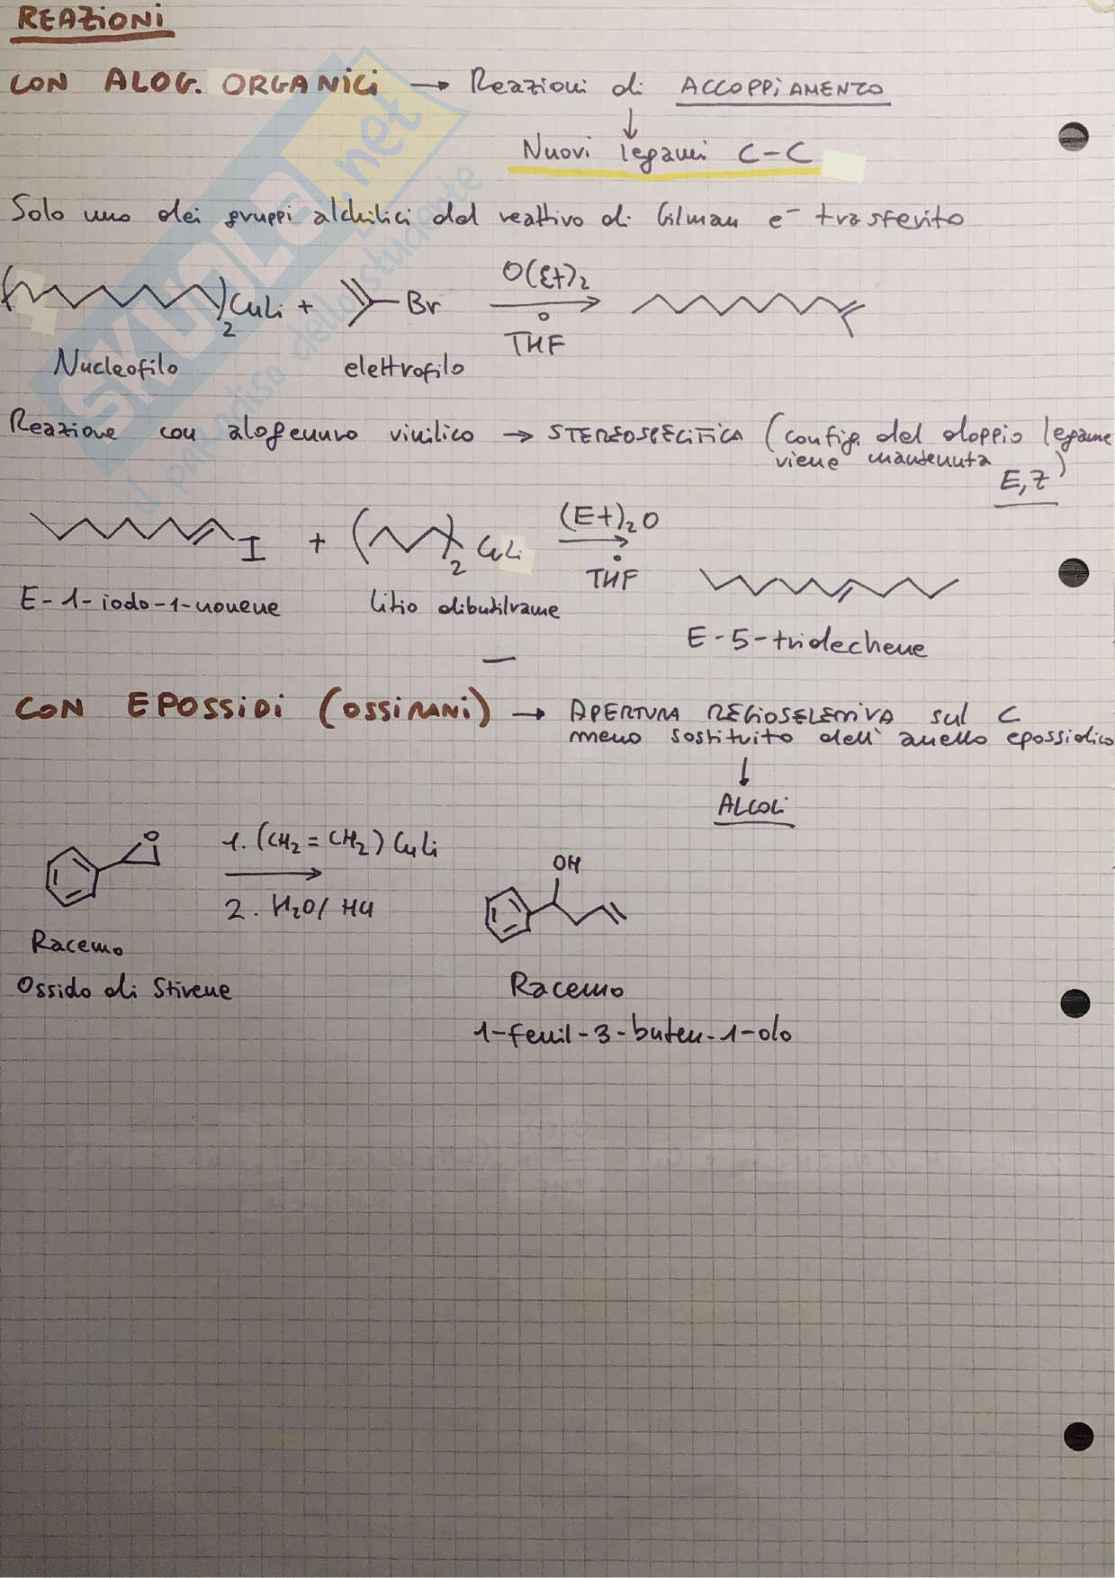 REAZIONI
CON ALOG. ORGANICI → Reazioni di ACCOPPIAMENTO
↓
Nuovi legami C-C
Solo uno dei gruppi alchilici del reattivo di Gilman e- trasferito
( )2CuLi + Br O(Et)2 THF
Nucleofilo elettrofilo
Reazione con alogenuro vinilico → STEREOSPECIFICA (config. del doppio legame
viene mantenuta
E,Z)
I + ( )2 CuLi (Et)2O THF
E-1-iodo-1-nonene litio dibutilrame
E-5-tridechene
CON EPOSSIDI (OSSIRANI) → APERTURA REGIOSELETTIVA sul C
meno sostituito dell' anello epossidico
↓
ALCOLI
O 1. (CH2=CH2)CuLi
2. H2O/HCl
OH
Racemo
Ossido di Stirene
Racemo
1-fenil-3-buten-1-olo
SKUOLA.net
il paradiso dello studente